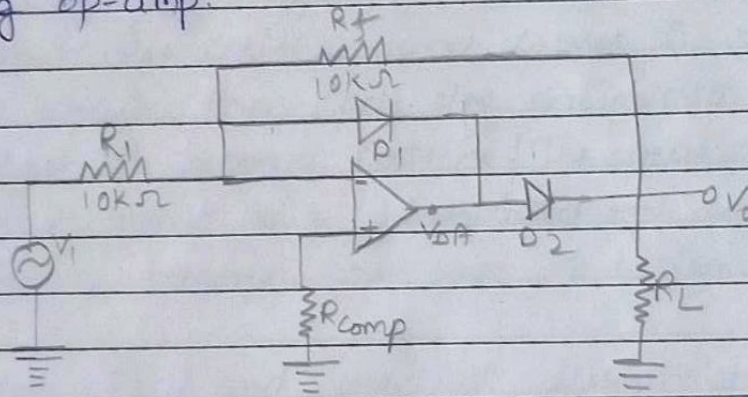 g op-amp.
Rf
10KΩ
D1
R1
10KΩ
-
+
VOA
D2
Vi
Rcomp
RL